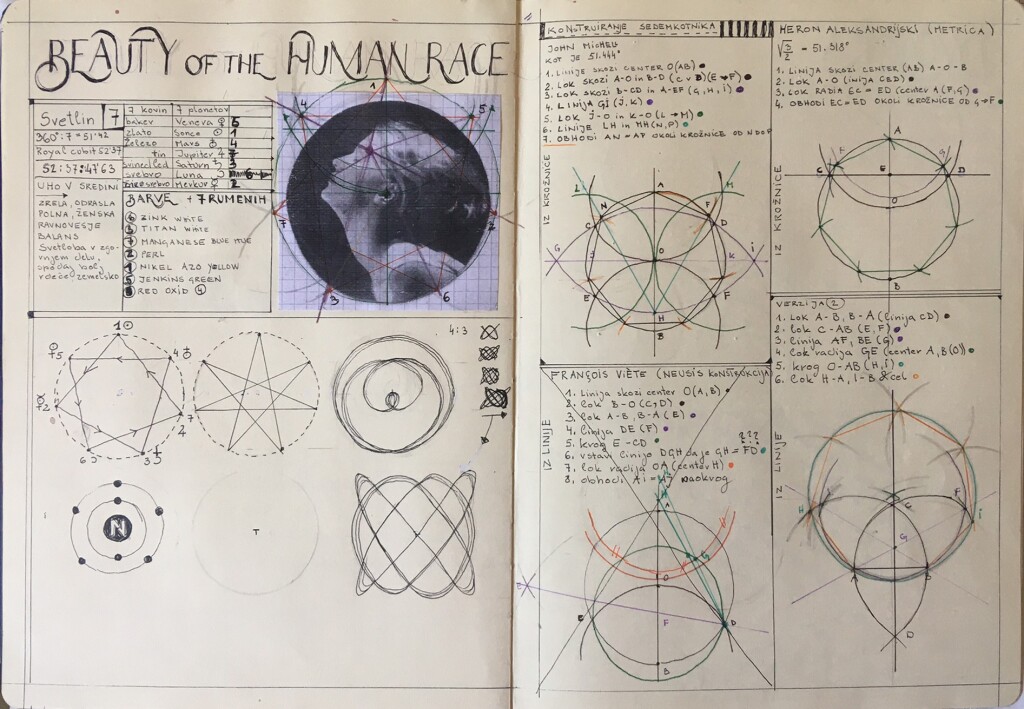 BEAUTY OF THE HUMAN RACE
Svetlin 7
360°:7=51'42
Royal cobit 5237
52:57:47'63
UHO V SREDINI
ZRELA, ODRASLA
POLNA, ŽENSKA
RAVNOVESJE
BALANS
Svetloba v zgo-
rnjem delu,
spodaj bolj
rdeče, zemeljsko
7 kovin 7 planetov
baker Venera ♀ 5
zlato Sonce ☉ 1
železo Mars ♂ 4
tin Jupiter ♃ 7
svinec/led Saturn ♄ 3
srebro Luna ☽
živo srebro Merkur ☿ 2
BARVE + 7 RUMENIH
6 ZINK WHITE
3 TITAN WHITE
7 MANGANESE BLUE HUE
2 PERL
1 NIKEL AZO YELLOW
5 JENKINS GREEN
RED OXID 4
1
4
5
7
2
3
6
4:3
1☉
☽5
4♂
☿2
7
2
6
3♄
N
T
KONSTRUIRANJE SEDEMKOTNIKA
JOHN MICHELL
KOT JE 51.444°
1. LINIJE SKOZI CENTER O(AB)
2. LOK SKOZI A-O IN B-D (C v D)(E→F)
3. LOK SKOZI B-CD IN A-EF (G, H, i)
4. LINIJA GI (J, K)
5. LOK J-O in K-O (L→M)
6. LINIJE LH in MH (N, P)
7. OBHODI AN=AF OKOLI KROŽNICE OD N DO F
IZ KROŽNICE
L
M
N
A
F
C
D
G
J
O
K
i
E
F
H
B
HERON ALEKSANDRIJSKI (METRICA)
√3/2 - 51.318°
1. LINIJA SKOZI CENTER (AB) A-O-B
2. LOK A-O (LINIJA CED)
3. LOK RADIA EC=ED (center A (F,G)
4. OBHODI EC=ED OKOLI KROŽNICE OD G→F
IZ KROŽNICE
A
F
G
C
E
D
O
B
FRANÇOIS VIÈTE (NEUSIS KONSTRUKCIJA)
1. Linija skozi center O(A,B)
2. lok B-O (C,D)
3. lok A-B, B-A (E)
4. linija DE (F)
5. krog E-CD
6. vstavi linijo DGH da je GH=FD ???
7. lok radija OA (center H)
8. obhodi Ai=H7 naokrog
IZ LINIJE
A
G
O
E
E
F
D
B
VERZIJA (2)
1. Lok A-B, B-A (linija CD)
2. lok C-AB (E, F)
3. linija AF, BE (G)
4. Lok radija GE (center A,B(O))
5. krog O-AB (H,i)
6. Lok H-A, i-B & cel
IZ LINIJE
H
C
F
i
G
A
B
D